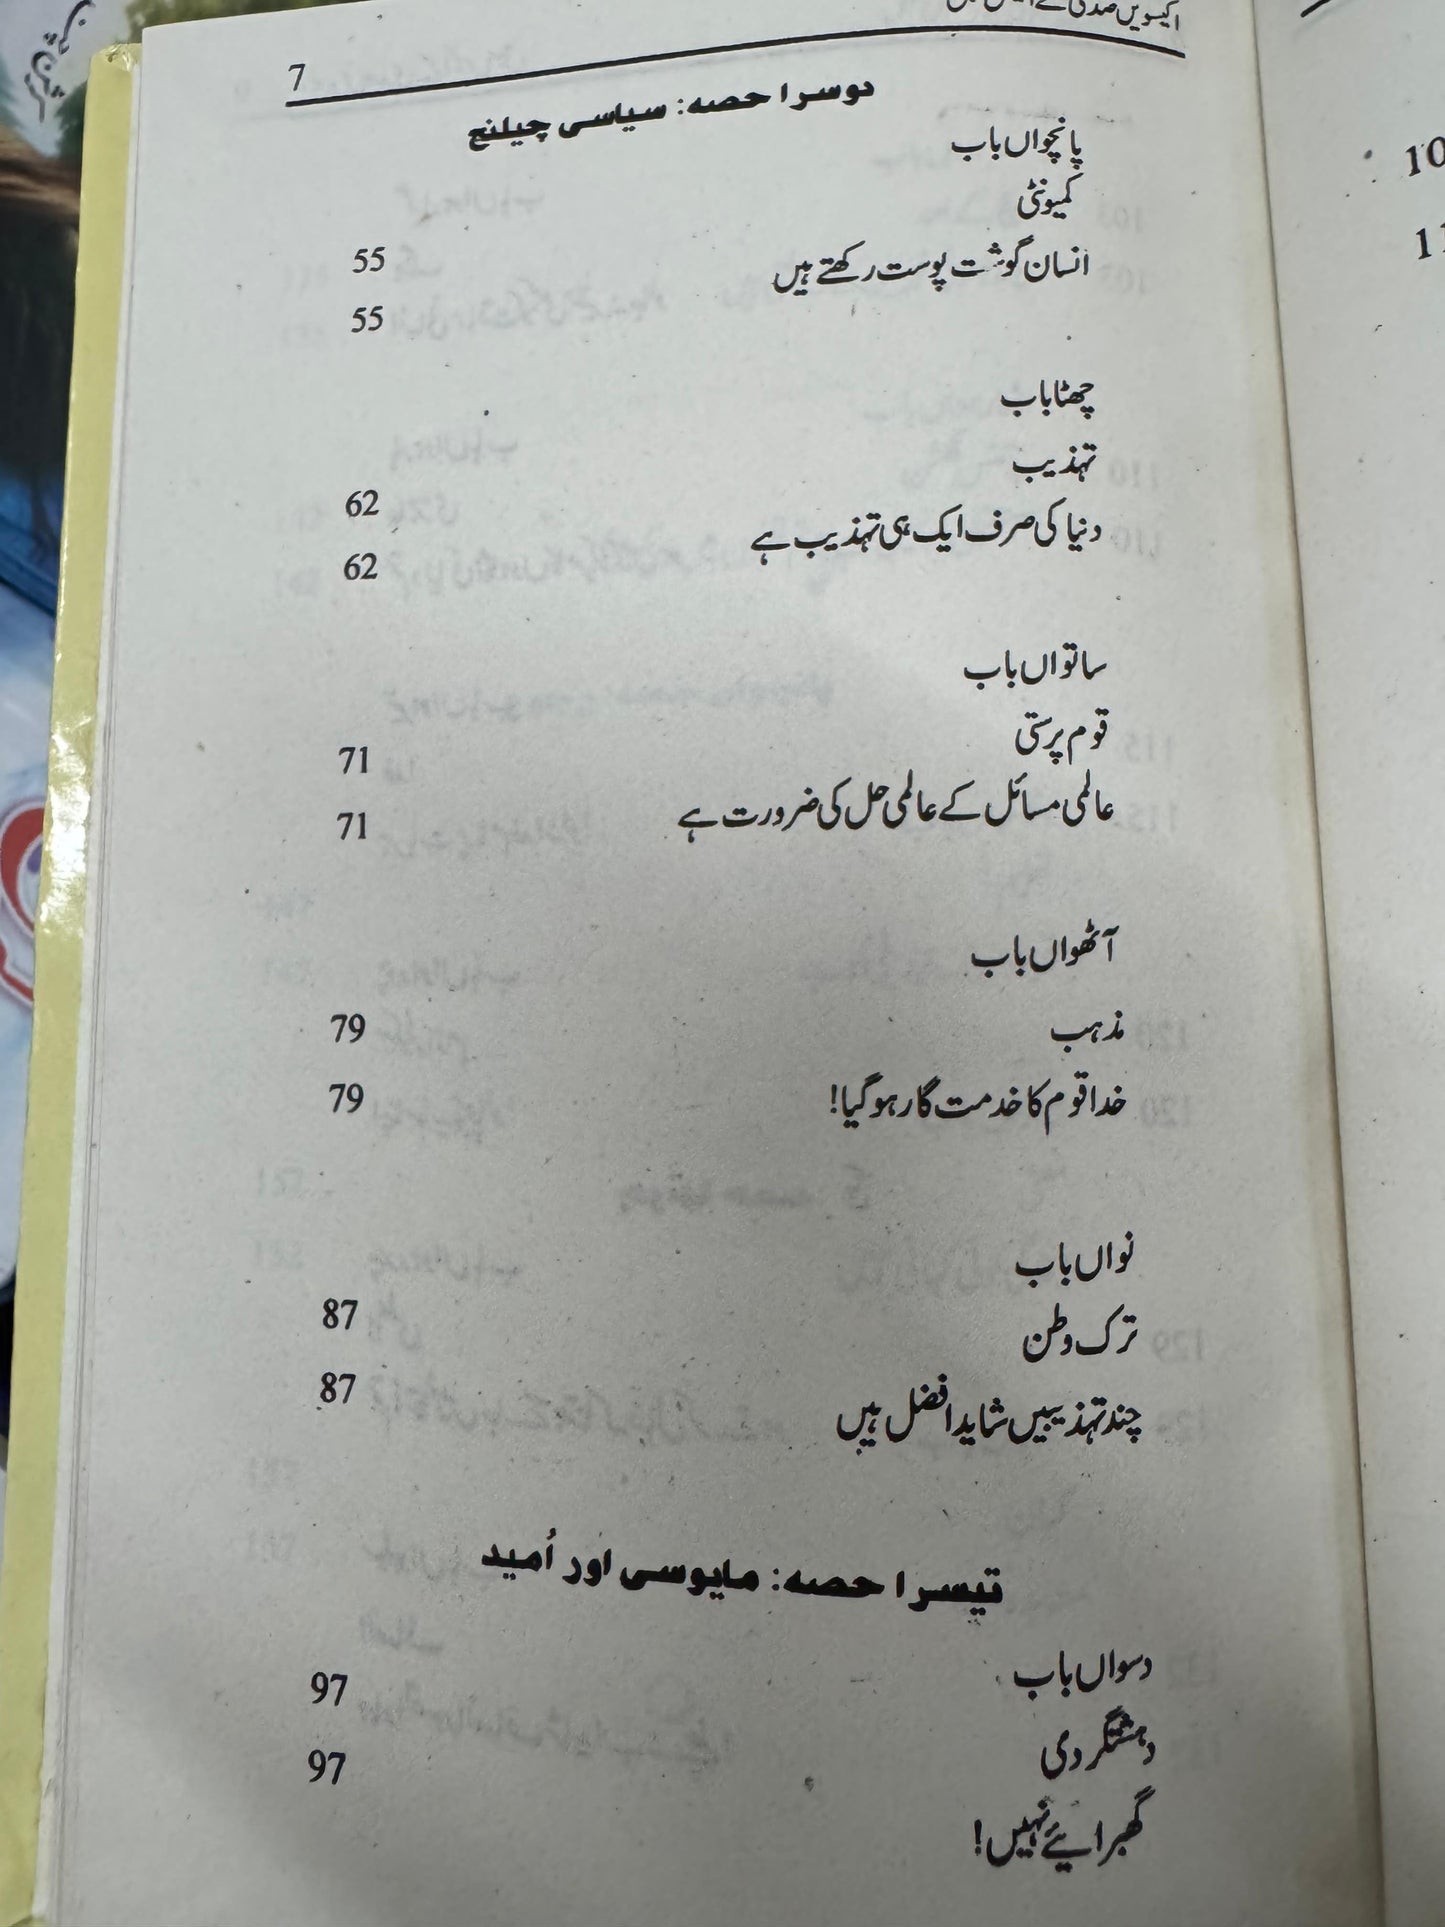 7
دوسرا حصہ: سیاسی چیلنج
پانچواں باب
کمیونٹی
55
انسان گوشت پوست رکھتے ہیں
55
چھٹا باب
تہذیب
62
دنیا کی صرف ایک ہی تہذیب ہے
62
ساتواں باب
قوم پرستی
71
عالمی مسائل کے عالمی حل کی ضرورت ہے
71
آٹھواں باب
مذہب
79
خدا قوم کا خدمت گار ہو گیا!
79
نواں باب
ترک وطن
87
چند تہذیبیں شاید افضل ہیں
87
تیسرا حصہ: مایوسی اور اُمید
دسواں باب
97
دہشتگردی
97
گھبرائیے نہیں!